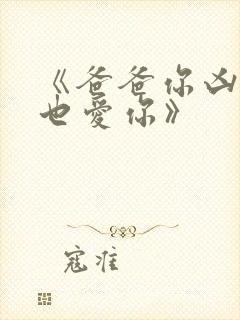 《爸爸你凶
也爱你》
寇准